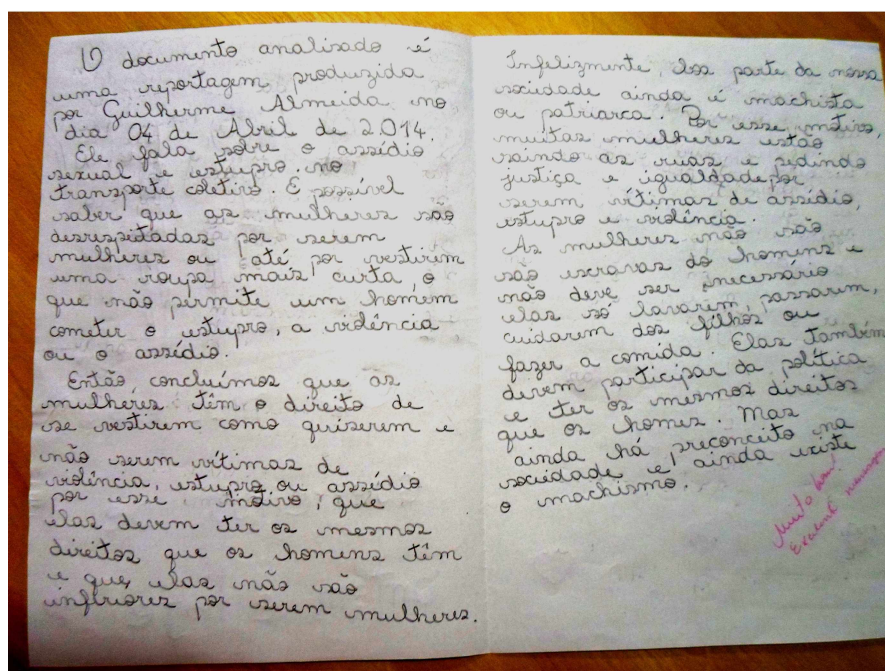 O documento analisado é
uma reportagem produzida
por Guilherme Almeida no
dia 04 de Abril de 2014.
Ele fala sobre o assédio
sexual e estupro no
transporte coletivo. É possível
saber que as mulheres são
desrespeitadas por serem
mulheres ou até por vestirem
uma roupa mais curta, o
que não permite um homem
cometer o estupro, a violência
ou o assédio.
Então, concluímos que as
mulheres têm o direito de
se vestirem como quiserem e
não serem vítimas de
violência, estupro ou assédio
por esse motivo, que
elas devem ter os mesmos
direitos que os homens têm
e que elas não são
inferiores por serem mulheres.
Infelizmente, boa parte da nossa
sociedade ainda é machista
ou patriarca. Por esse motivo,
muitas mulheres estão
saindo as ruas e pedindo
justiça e igualdade por
serem vítimas de assédio,
estupro e violência.
As mulheres não são
são escravas do homens e
não deve ser necessário
elas só lavarem, passarem,
cuidarem dos filhos ou
fazer a comida. Elas também
devem participar da política
e ter os mesmos direitos
que os homes. Mas
ainda há preconceito na
sociedade e ainda existe
o machismo.
Muito bom!